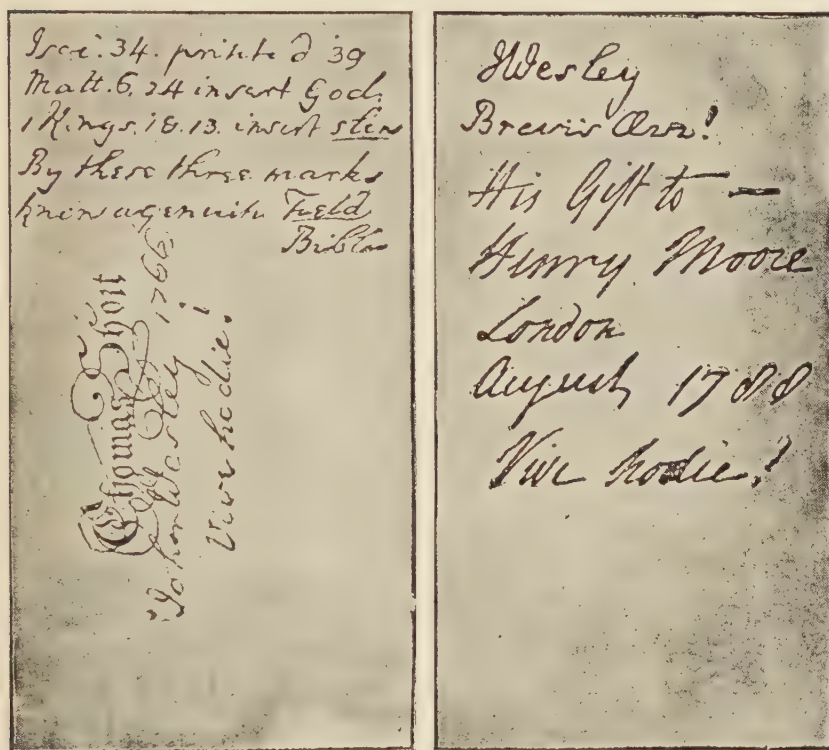 Isai. 34. printed 39
Matt. 6. 24 insert God.
1 Kings. 18. 13. insert
By these three marks
know a genuine Field
Bible
Thomas Short
John Wesley 1766.
Vive hodie!
JWesley
Brevis Ævi!
His Gift to —
Henry Moore
London
August, 1788
Vive hodie!